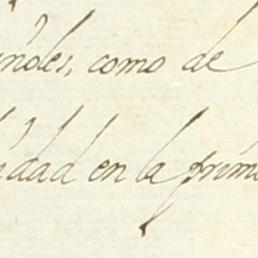 ñoles, como de
idad en la prim